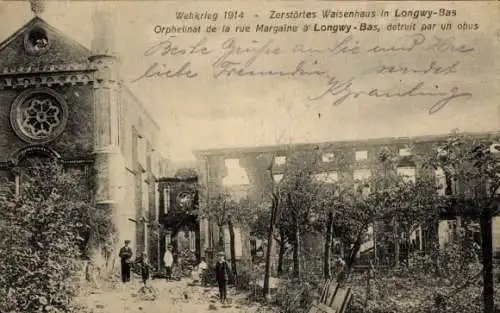 Weltkrieg 1914 - Zerstörtes Waisenhaus in Longwy-Bas
Orphelinat de la rue Margaine à Longwy-Bas, détruit par un obus
Beste Grüße an Sie und Ihre
liebe Freundin sendet